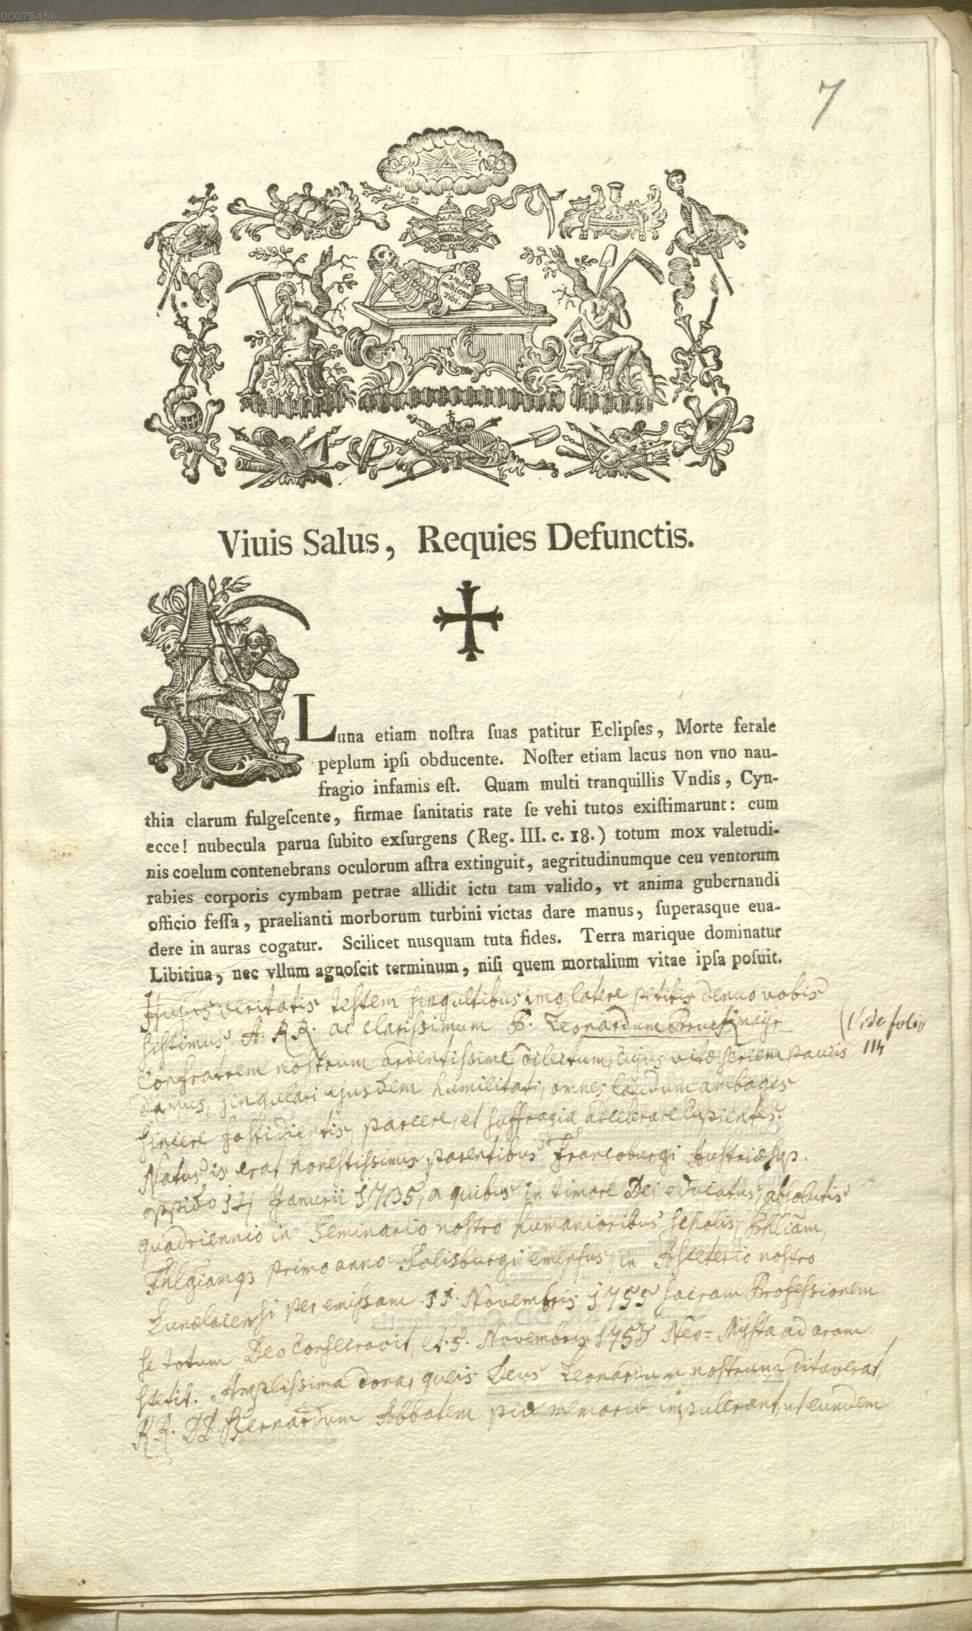 00075456
7
Hodie
mihi cras
tibi.
Viuis Salus, Requies Defunctis.
Luna etiam noſtra ſuas patitur Eclipſes, Morte ferale
peplum ipſi obducente. Noſter etiam lacus non vno nau-
fragio infamis eſt. Quam multi tranquillis Vndis, Cyn-
thia clarum fulgeſcente, firmae ſanitatis rate ſe vehi tutos exiſtimarunt: cum
ecce! nubecula parua ſubito exſurgens (Reg. III. c. 18.) totum mox valetudi-
nis coelum contenebrans oculorum aſtra extinguit, aegritudinumque ceu ventorum
rabies corporis cymbam petrae allidit ictu tam valido, vt anima gubernandi
officio feſſa, praelianti morborum turbini victas dare manus, ſuperasque eua-
dere in auras cogatur. Scilicet nusquam tuta fides. Terra marique dominatur
Libitina, nec vllum agnoſcit terminum, niſi quem mortalium vitae ipſa poſuit.
Hujus veritatis testem singultibus imo latere petitis denuo vobis
sistimus A. RR. ac clarissimum P. Leonardum
Confratrem nostrum ardentissime dilectum, cujus vitæ seriem paucis
(Vide folio
114
damus, singulari ejusdem humilitati, omnes laudum ambages
sincere fastidientis, parcere, et suffragia accelerare cupientes.
Natus is erat honestissimis parentibus Francoburgi Austriæ sup.
oppido 17 Januarii 1735, a quibus in timore Dei educatus, absolutis
quadriennio in Seminario nostro humanioribus scholis,
primo anno Salisburgi emensus, in Asceterio nostro
Lunælacensi per emissam 11. Novembris 1755 sacram Professionem
se totum Deo consecravit, et 5. Novembris Neo-Mysta ad aram
stetit. Amplissima dona, queis Deus Leonardum nostrum ditaverat,
RR. DD Bernardum Abbatem piæ memoriæ impulerant, ut eundem